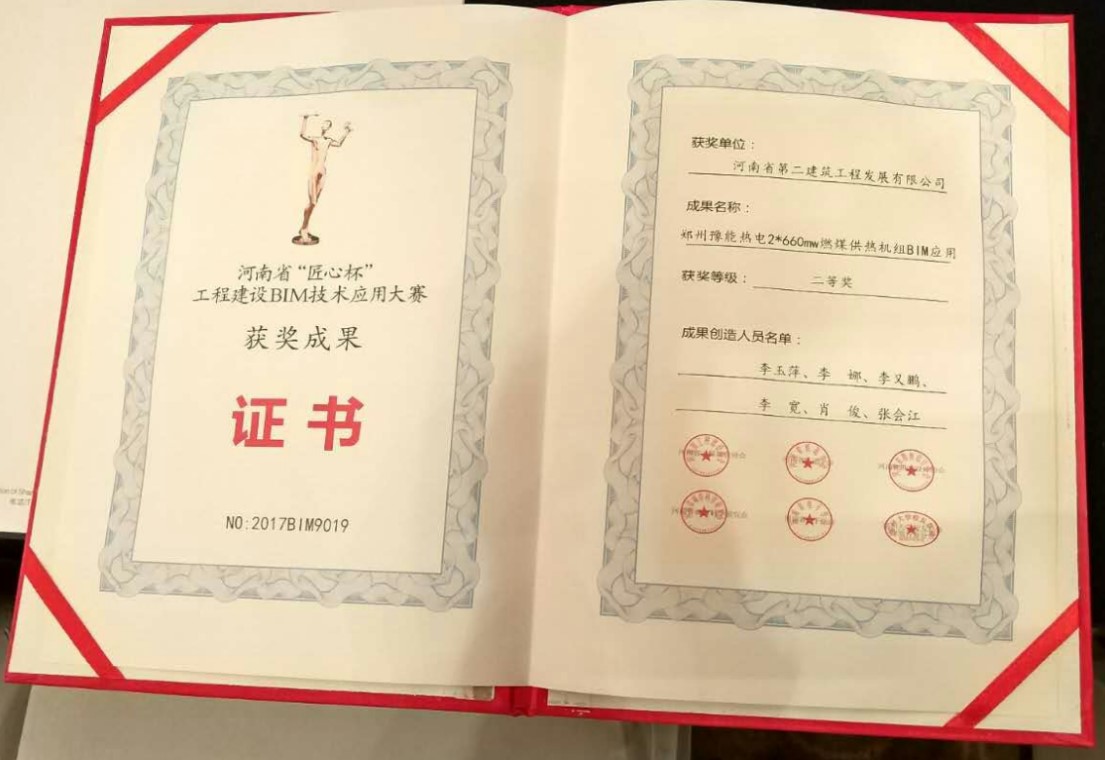 河南省“匠心杯”
工程建设BIM技术应用大赛
获奖成果
证书
NO:2017BIM9019
获奖单位：
河南省第二建筑工程发展有限公司
成果名称：
郑州豫能热电2*660mw燃煤供热机组BIM应用
获奖等级： 二等奖
成果创造人员名单：
李玉萍、李 娜、李又鹏、
李 宽、肖 俊、张会江